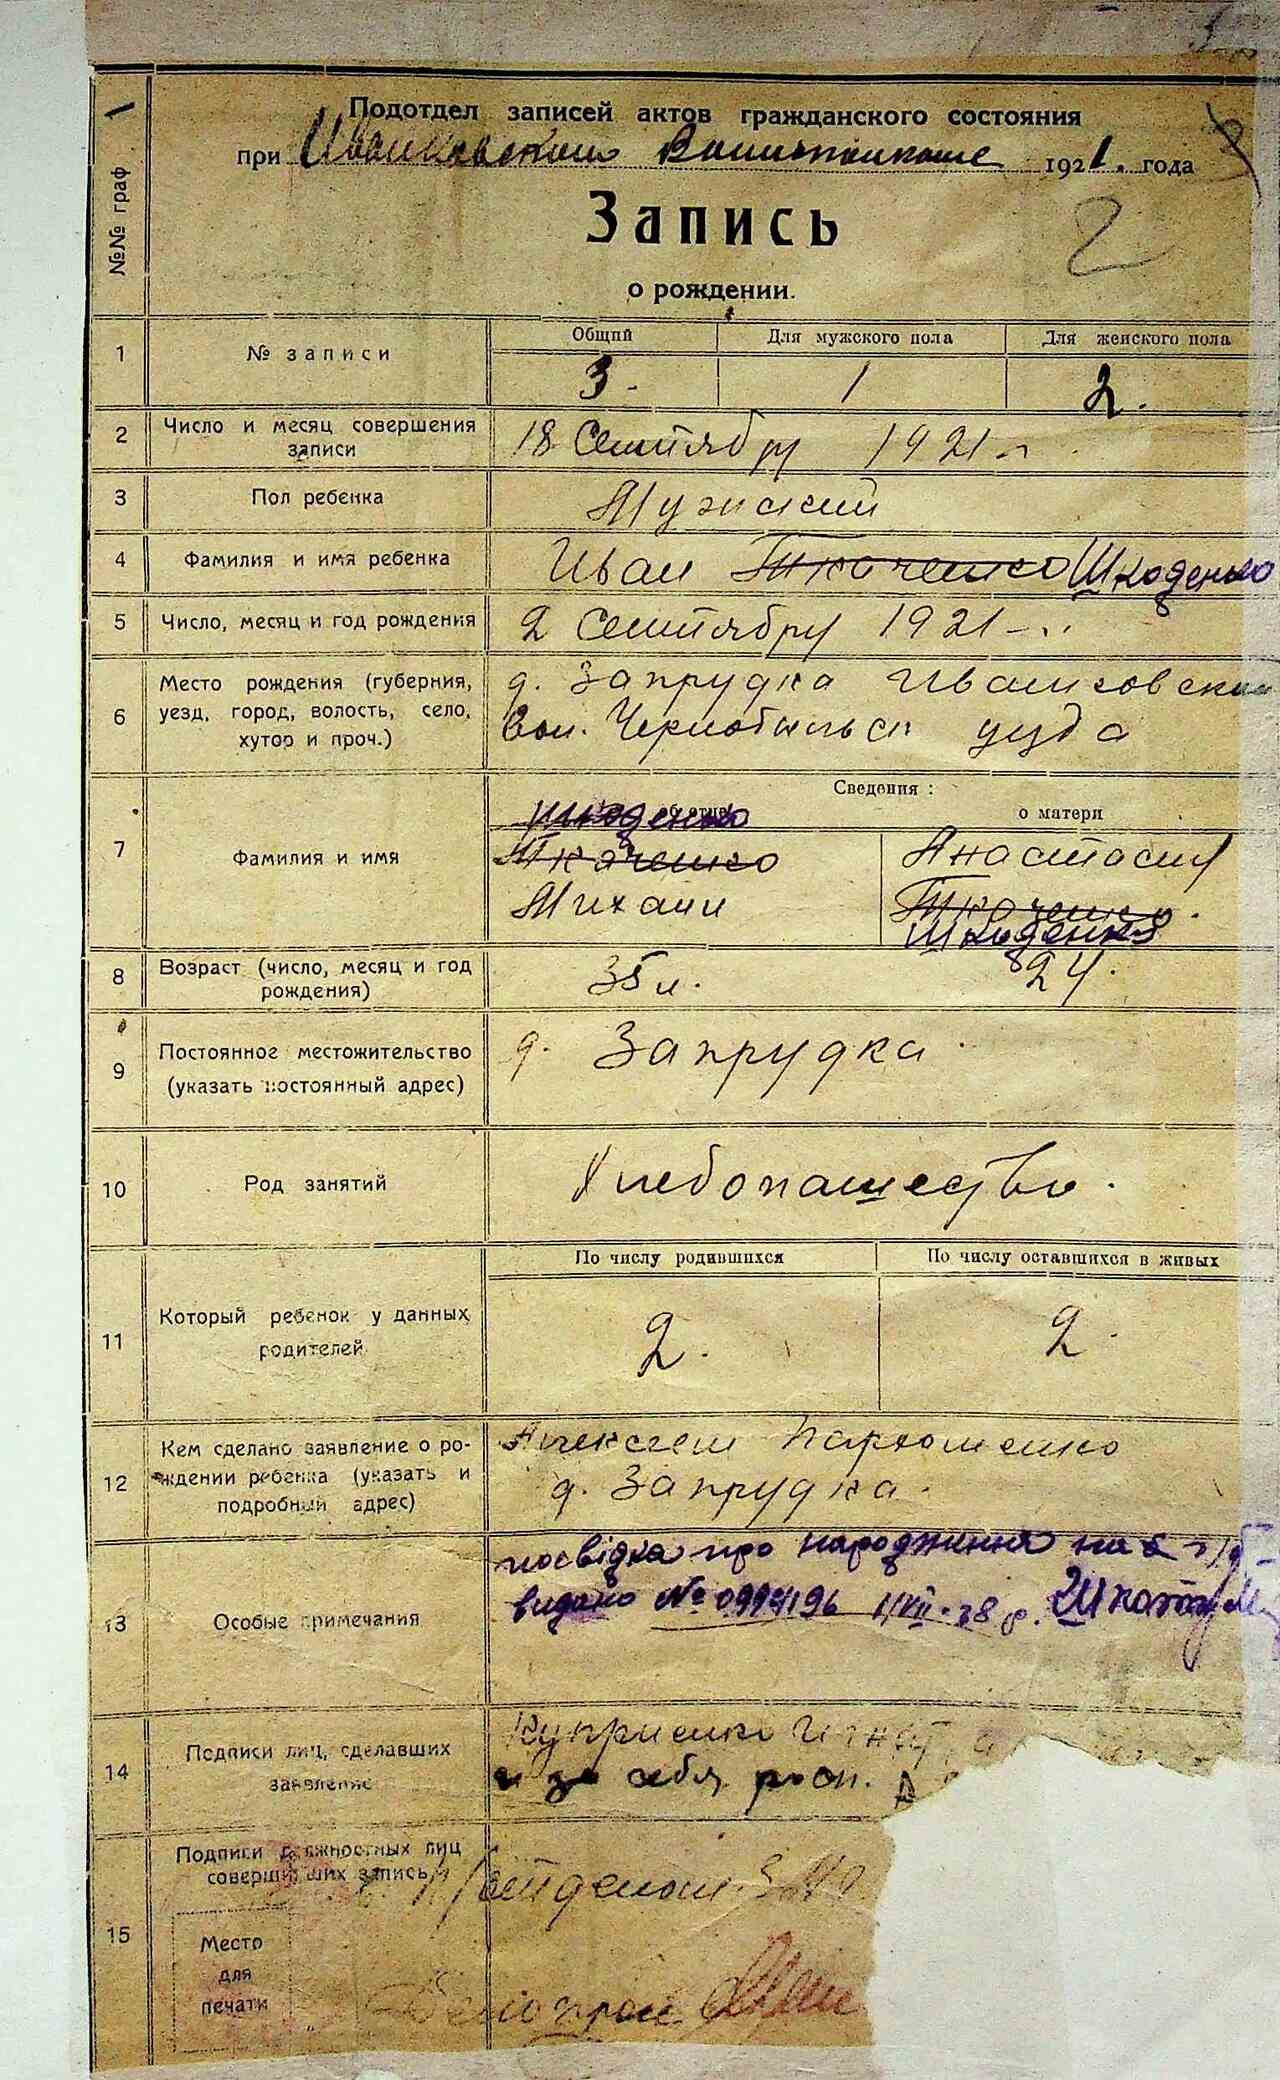 №№ граф
1
Подотдел записей актов гражданского состояния
при Иванковском Волисполкоме 1921. года
Запись
2
о рождении.
1
№ записи
Общий
Для мужского пола
Для женского пола
3.
1
2.
2
Число и месяц совершения
записи
18 Сентябру 1921 г.
3
Пол ребенка
Мужский
4
Фамилия и имя ребенка
Иван Ткаченко Шкоденко
5
Число, месяц и год рождения
2 Сентябру 1921
6
Место рождения (губерния,
уезд, город, волость, село,
хутор и проч.)
д. Запрудка Иванковский
Вол. Чернобыльск уезда
Сведения :
об отце
о матери
7
Фамилия и имя
Шкоденко
Ткаченко
Михаил
Анастасия
Ткаченко.
Шкоденко
8
Возраст (число, месяц и год
рождения)
35 л.
24.
9
Постоянное местожительство
(указать постоянный адрес)
д. Запрудка
10
Род занятий
Хлебопашество.
11
Который ребенок у данных
родителей
По числу родившихся
По числу оставшихся в живых
2.
2.
12
Кем сделано заявление о ро-
ждении ребенка (указать и
подробный адрес)
Алексеем Пархоменко
д. Запрудка.
13
Особые примечания
посвідка про народження
видано № 0994196 1/VII-38 р.
14
Подписи лиц, сделавших
заявление
Куприенко Игнат
и за себя росп.
15
Подписи должностных лиц
совершивших запись
Место
для
печати